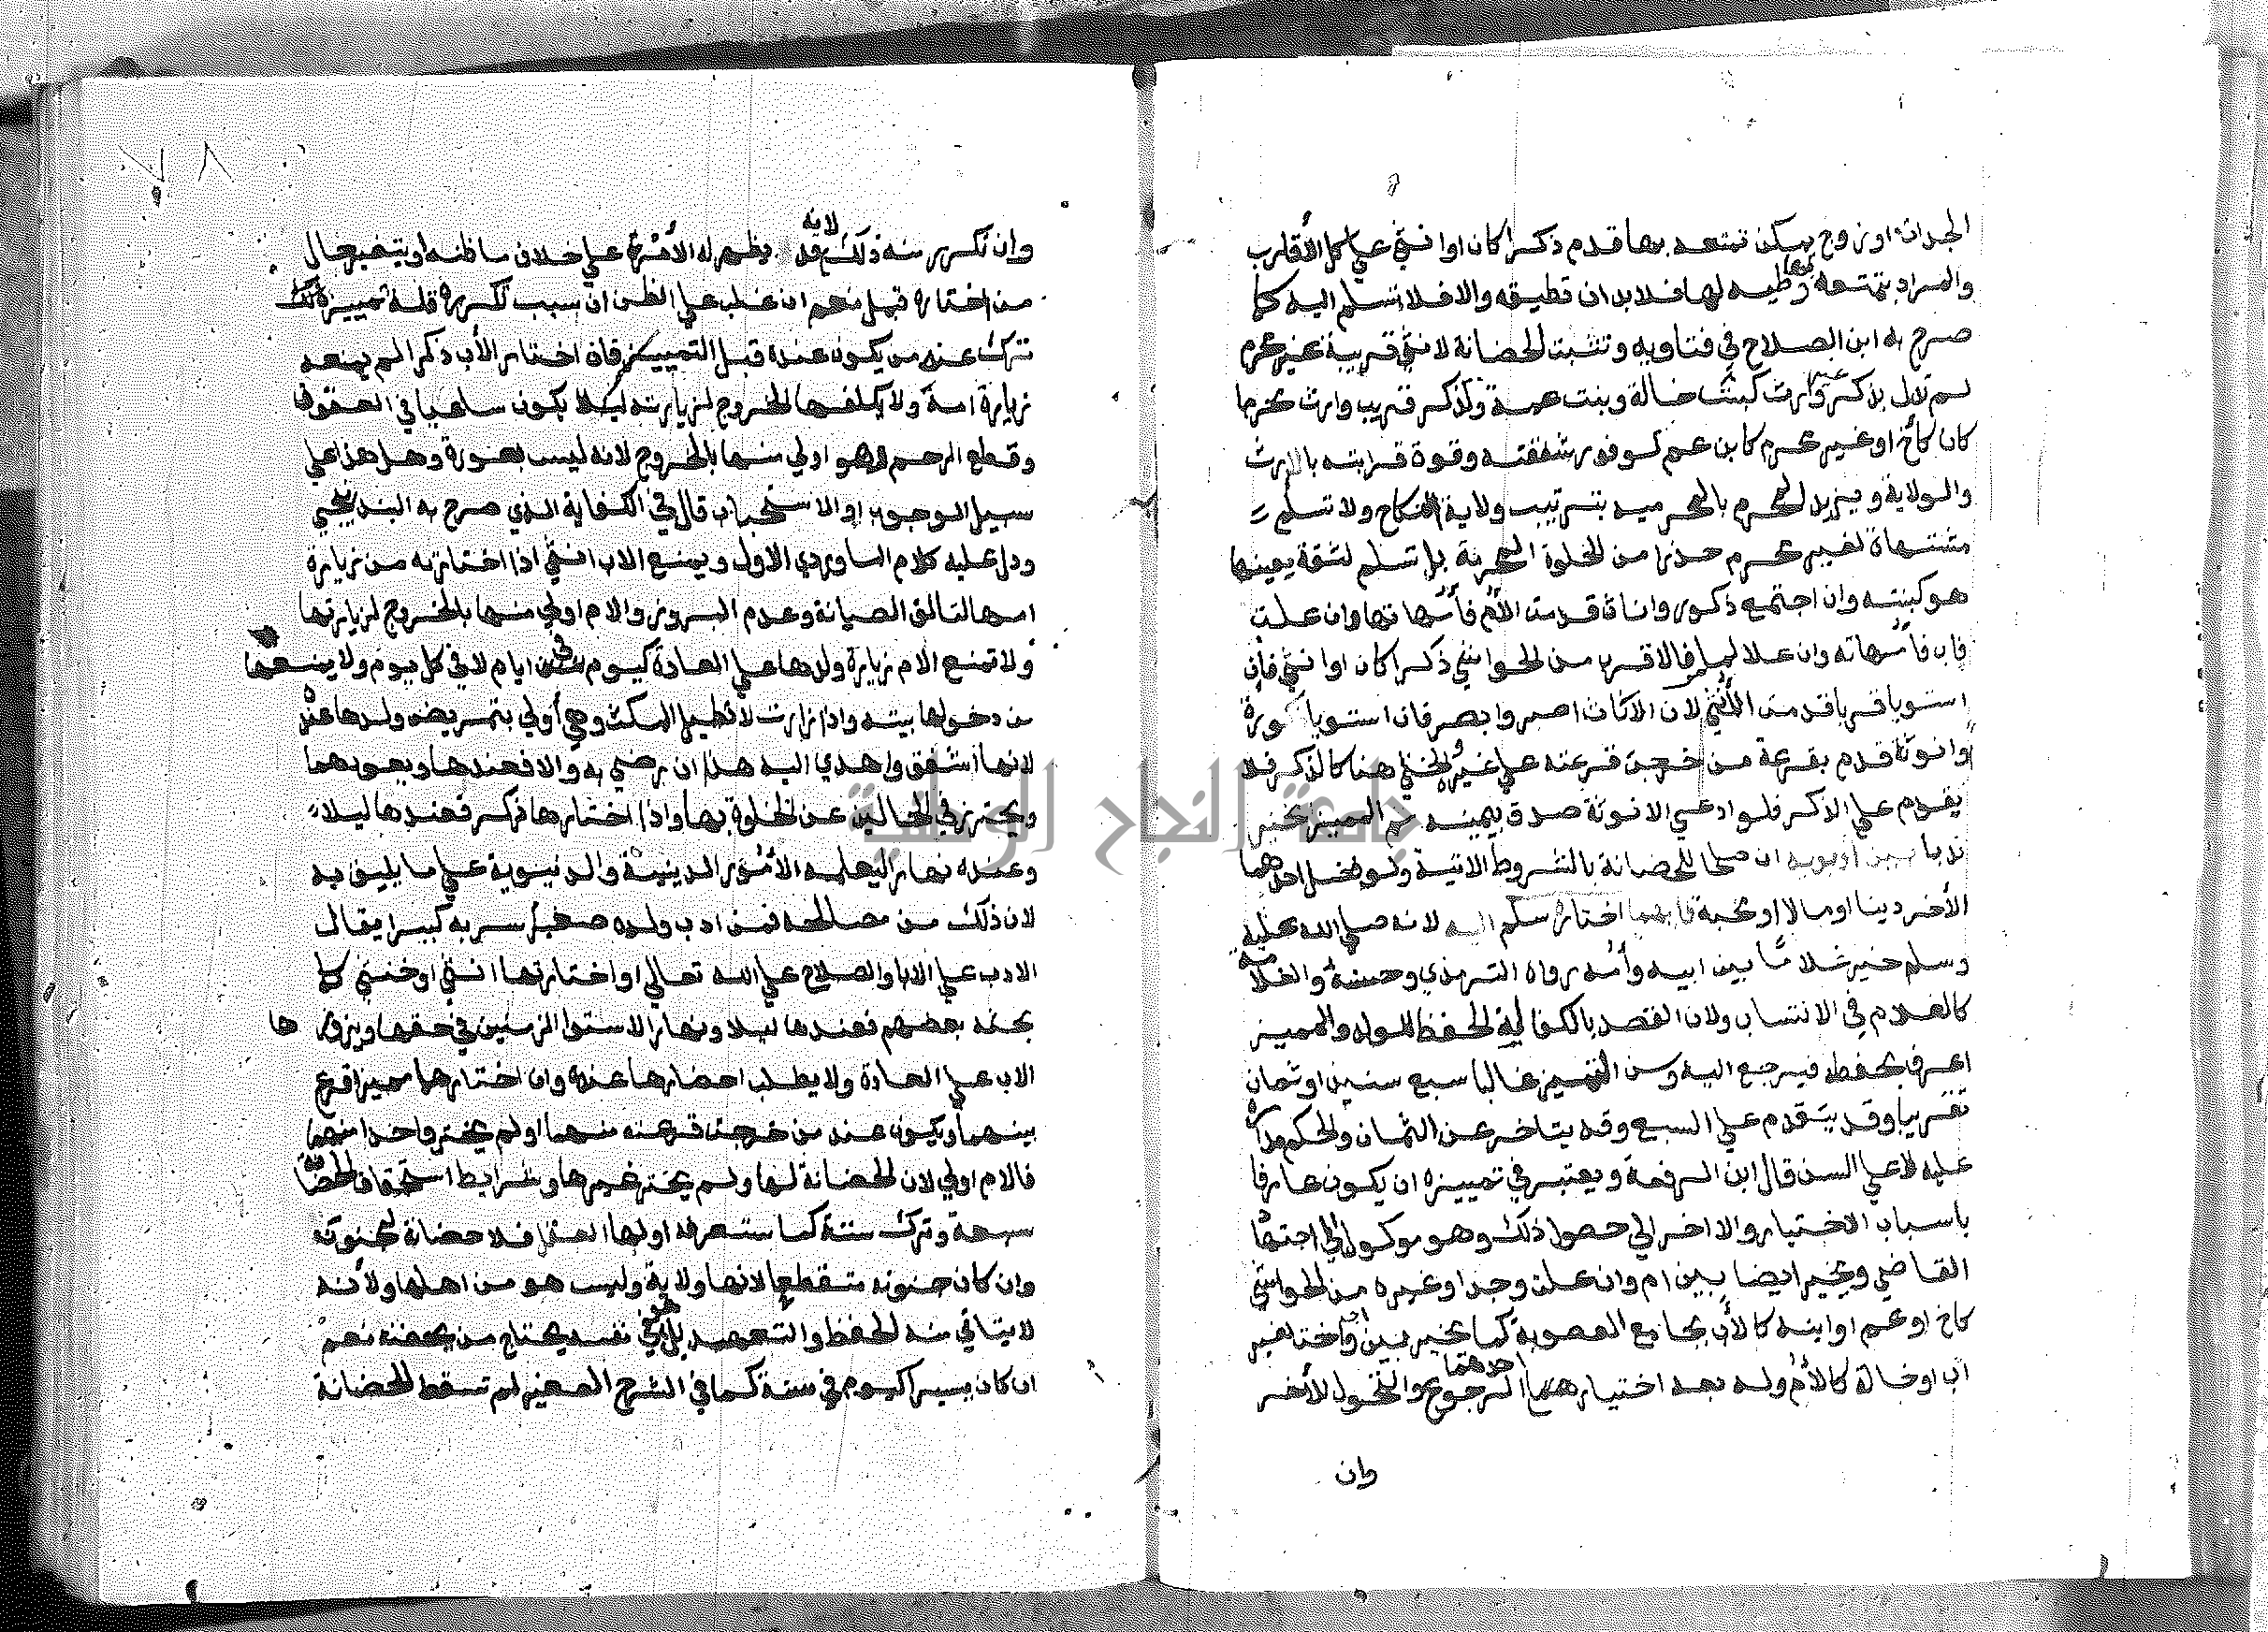 الجدات او زوج يمكن تمتعه بها قدم ذكرا كان او انثي علي كل الأقارب
والمراد بتمتعه بها وطيه لها فلا بد ان تطيقه والا فلا تسلم اليه كما
صرح به ابن الصلاح في فتاويه وتثبت الحضانة لانثي قريبة غير محرم
لم تدل بذكر غير وارث كبنت خالة وبنت عمة ولذكر قريب وارث محرما
كان كأخ او غير محرم كابن عم لوفور شفقته وقوة قرابته بالارث
والولاية ويزيد المحرم بالمحرمية بترتيب ولاية النكاح ولا تسلم
مشتهاة لغير محرم حذرا من الخلوة المحرمة بل تسلم لثقة يعينها
هو كبنته وان اجتمع ذكور واناث قدمت الأم فأمهاتها وان علت
فاب فأمهاته وان علا لما مر فالاقرب من الحواشي ذكرا كان او انثي فان
استويا قربا قدمت الأنثي لان الاناث اصبر وابصر فان استويا ذكورة
وانوثة قدم بقرعة من خرجت قرعته علي غيره والخنثي هنا كالذكر فلا
يقدم علي الذكر فلو ادعي الانوثة صدق بيمينه ثم المميز يخير
ندبا بين ابويه ان صلحا للحضانة بالشروط الاتية ولو فضل احدهما
الأخر دينا او مالا او محبة فايهما اختاره سلم اليه لانه صلي الله عليه
وسلم خير غلاما بين ابيه وأمه رواه الترمذي وحسنه والغلامة
كالغلام في الانتساب ولان القصد بالكفالة الحفظ للولد والمميز
اعرف بحفظه فيرجع اليه وسن التمييز غالبا سبع سنين او ثمان
تقريبا وقد يتقدم علي السبع وقد يتاخر عن الثمان والحكم مداره
عليه لا علي السن قال ابن الرفعة ويعتبر في تمييزه ان يكون عارفا
باسباب الاختيار والا اخر الي حصول ذلك وهو موكول الي اجتهاد
القاضي ويخير ايضا بين ام وان علت وجد او غيره من الحواشي
كاخ او عم او ابنه كالأب بجامع العصوبة كما يخير بين اب واخت لغير
اب او خالة كالأم وله بعد اختيار احدهما الرجوع والتحول للأخر
وان
٧٨
وان تكرر منه ذلك لانه قد يظهر له الأمر علي خلاف ما ظنه او يتغير حال
من اختاره قبل نعم ان غلب علي الظن ان سبب تكرره قلة تمييزه
ترك عند من يكون عنده قبل التمييز فان اختار الأب ذكر لم يمنعه
زيارة امه ولا يكلفها الخروج لزيارته ليلا يكون ساعيا في العقوق
وقطع الرحم وهو اولي منها بالخروج لانه ليس بعورة وهل هذا علي
سبيل الوجوب او الاستحباب قال في الكفاية الذي صرح به البندنيجي
ودل عليه كلام الماوردي الاول ويمنع الاب انثي اذا اختارته من زيارة
امها لتالف الصيانة وعدم البروز والام اولي منها بالخروج لزيارتها
ولا تمنع الام زيارة ولدها علي العادة كيوم في ايام لا في كل يوم ولا يمنعها
من دخولها بيته واذا زارت لا تطيل المكث وهي أولي بتمريض ولدها عنده
لانها أشفق واهدي اليه هذا ان رضي به والا فعندها ويعودهما
ويحترز في الحالين عن الخلوة بها واذا اختارها ذكر فعندها ليلا
وعنده نهارا ليعلمه الأمور الدينية والدنيوية علي ما يليق به
لان ذلك من مصالحه فمن ادب ولده صغيرا سر به كبيرا يقال
الادب علي الابا والصلاح علي الله تعالي او اختارتها انثي او خنثي كما
بحثه بعضهم فعندها ليلا ونهارا لاستوا الزمنين في حقها ويزورها
الاب علي العادة ولا يطلب احضارها عنده وان اختارهما مميز اقرع
بينهما ويكون عند من خرجت قرعته منهما او لم يختر واحدا منهما
فالام اولي لان الحضانة لها ولم يختر غيرها وشرايط استحقاق الحضانة
سبعة وترك ستة كما ستعرفه اولها العقل فلا حضانة لمجنونة
وان كان جنونه متقطعا لانها ولاية وليس هو من اهلها ولأنه
لا يتاتي منه الحفظ والتعهد بل هو في نفسه يحتاج من يحفظه نعم
ان كان يسيرا كيوم في سنة كما في الشرح الصغير لم تسقط الحضانة
جامعة النجاح الوطنية